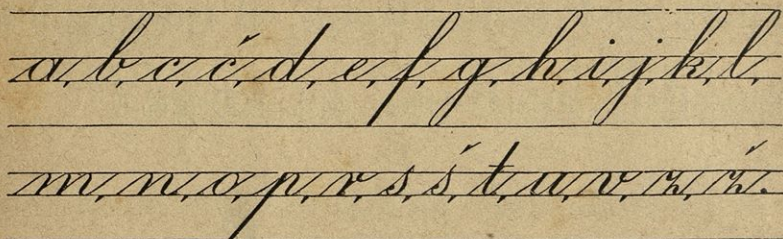 a, b, c, č, d, e, f, g, h, i, j, k, l,
m, n, o, p, r, s, š, t, u, v, z, ž.